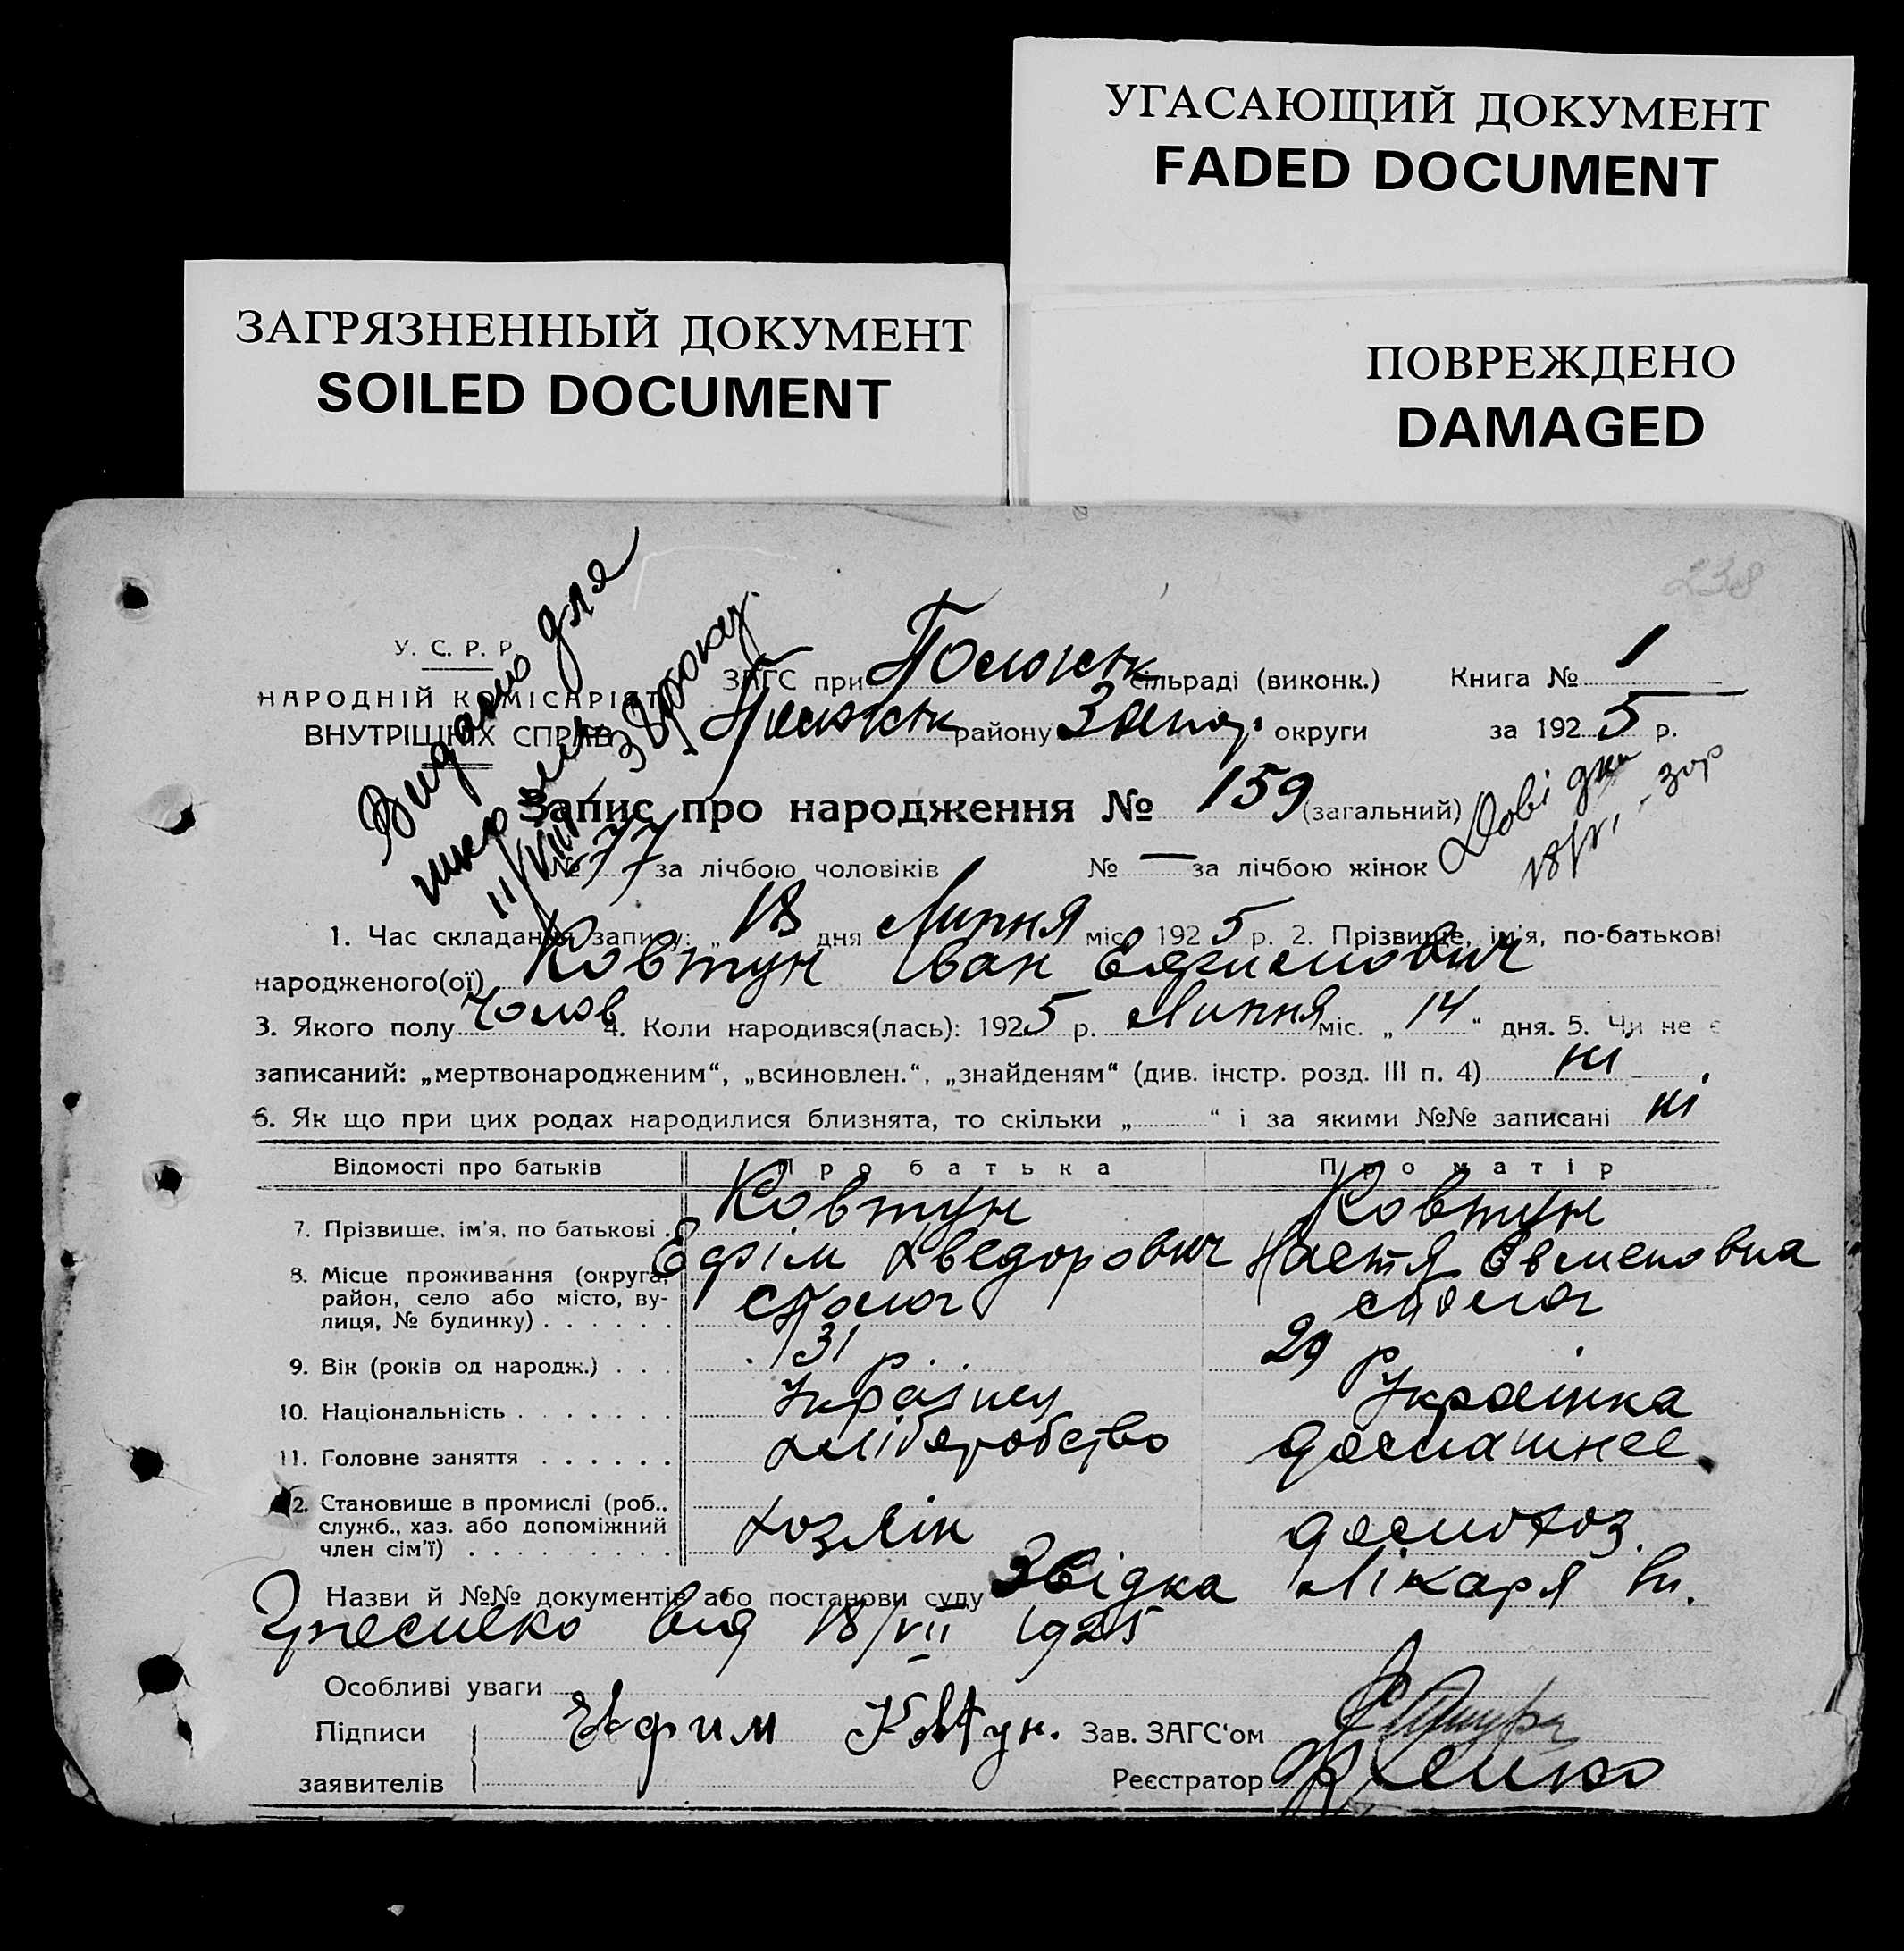 УГАСАЮЩИЙ ДОКУМЕНТ
FADED DOCUMENT
ЗАГРЯЗНЕННЫЙ ДОКУМЕНТ
SOILED DOCUMENT
ПОВРЕЖДЕНО
DAMAGED
238
Видано для
У. С. Р. Р.
НАРОДНІЙ КОМІСАРІЯТ
ВНУТРІШНІХ СПРАВ
ЗАГС при сільраді (виконк.) Книга № 1
району Запор. округи за 1925 р.
Запис про народження № 159 (загальний)
Довідка
№ 77 за лічбою чоловіків № — за лічбою жінок
1. Час складання запису: „ 18 дня Липня міс. 1925 р. 2. Прізвище, ім'я, по-батькові
народженого(ої) Ковтун Іван Ефимович
3. Якого полу Чолов 4. Коли народився(лась): 1925 р. Липня міс. „ 14 “ дня. 5. Чи не є
записаний: „мертвонародженим“, „всиновлен.“, „знайденям“ (див. інстр. розд. III п. 4) ні
6. Як що при цих родах народилися близнята, то скільки „ “ і за якими №№ записані ні
Відомості про батьків Про батька Про матір
7. Прізвище, ім'я, по батькові . Ковтун Ефім Хведорович Ковтун Настя Овменовна
8. Місце проживання (округа, район, село або місто, вулиця, № будинку)
9. Вік (років од народж.) 31 р. 29 р
10. Національність Українец Українка
11. Головне заняття хліборобство домашнее
12. Становище в промислі (роб., служб., хаз. або допоміжний член сім'ї) хозяїн домохоз.
Назви й №№ документів або постанови суду Звідка Лікаря
від 18/VII 1925
Особливі уваги
Підписи заявителів Ефим Ковтун. Зав. ЗАГС'ом
Реєстратор